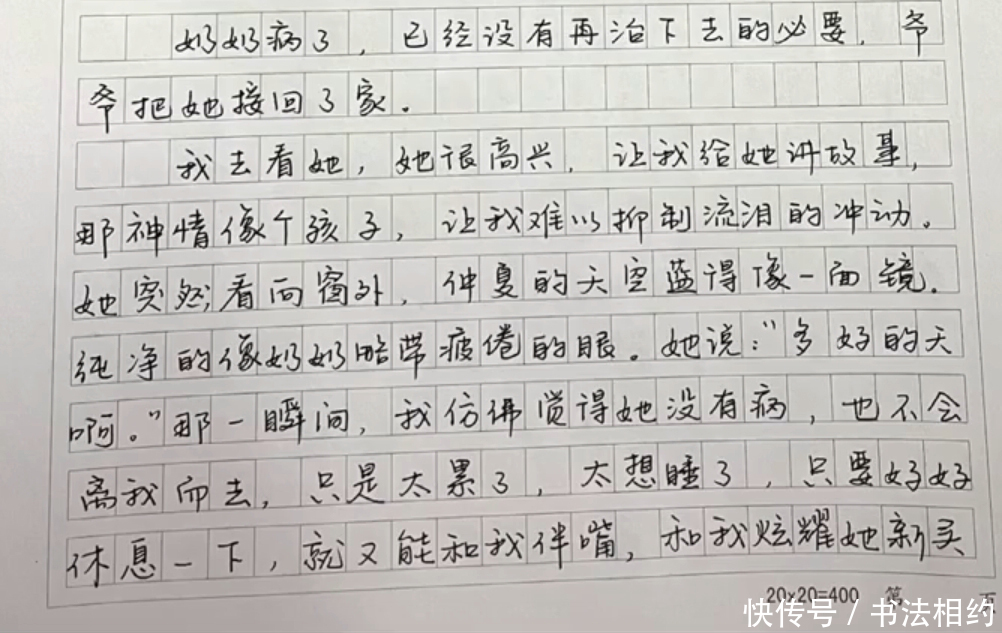 奶奶病了，已经没有再治下去的必要，爷
爷把她接回了家。
我去看她，她很高兴，让我给她讲故事，
那神情像个孩子，让我难以抑制流泪的冲动。
她突然看向窗外，仲夏的天空蓝得像一面镜，
纯净的像奶奶略带疲倦的眼。她说：“多好的天
啊。”那一瞬间，我仿佛觉得她没有病，也不会
离我而去，只是太累了，太想睡了，只要好好
休息一下，就又能和我伴嘴，和我炫耀她新买
20×20=400 第 页
快传号 / 书法相约